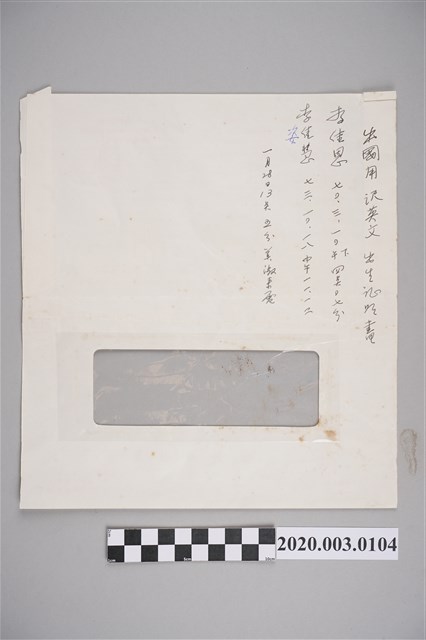 出國用 沢英文 出生証明書
李佳恩 七〇.三.一〇.下午 四点〇七分
李佳慧 七三.一〇.一八 中午 一二.一二
安
一月28日13点五分 美淑来
2020.003.0104